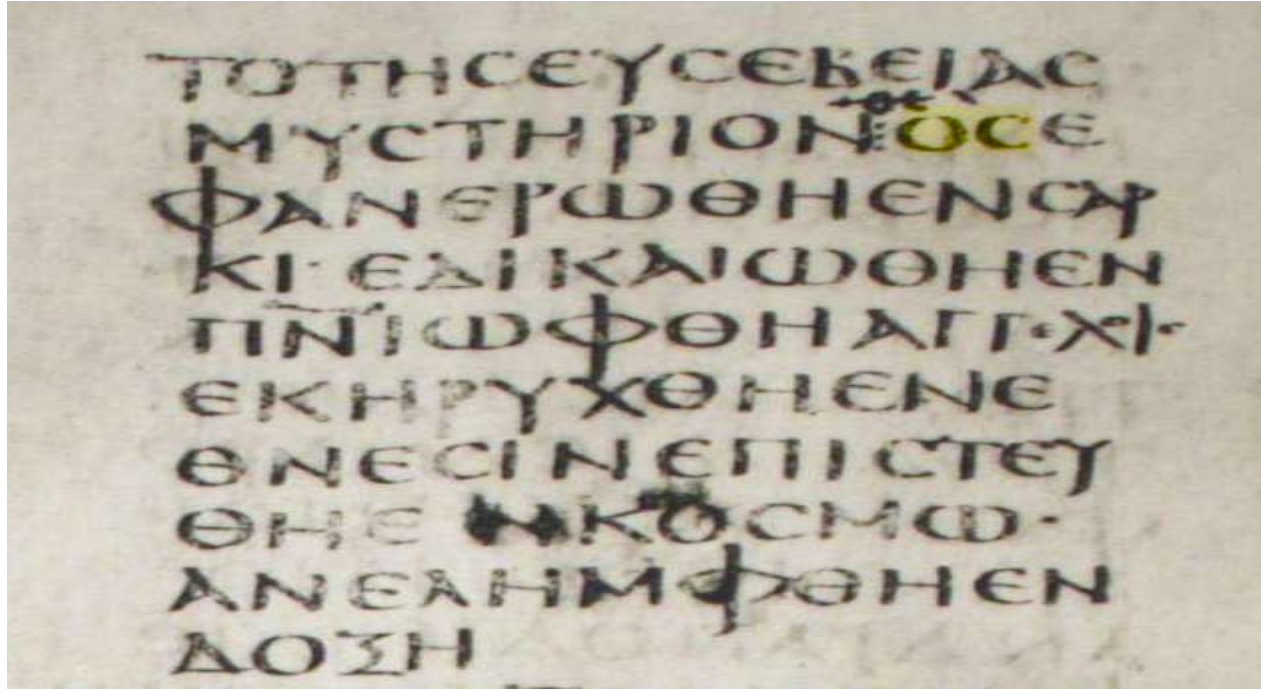 ΤΟΤΗϹΕΥϹΕΒΕΙΑϹ
ΜΥϹΤΗΡΙΟΝ ΟϹΕ
ΦΑΝΕΡΩΘΗΕΝϹΑΡ
ΚΙ·ΕΔΙΚΑΙΩΘΗΕΝ
ΠΝΙΩΦΘΗ
ΕΚΗΡΥΧΘΗΕΝΕ
ΘΝΕϹΙΝΕΠΙϹΤΕΥ
ΘΗΕΝΚΟϹΜΩ·
ΑΝΕΛΗΜΦΘΗΕΝ
ΔΟΞΗ